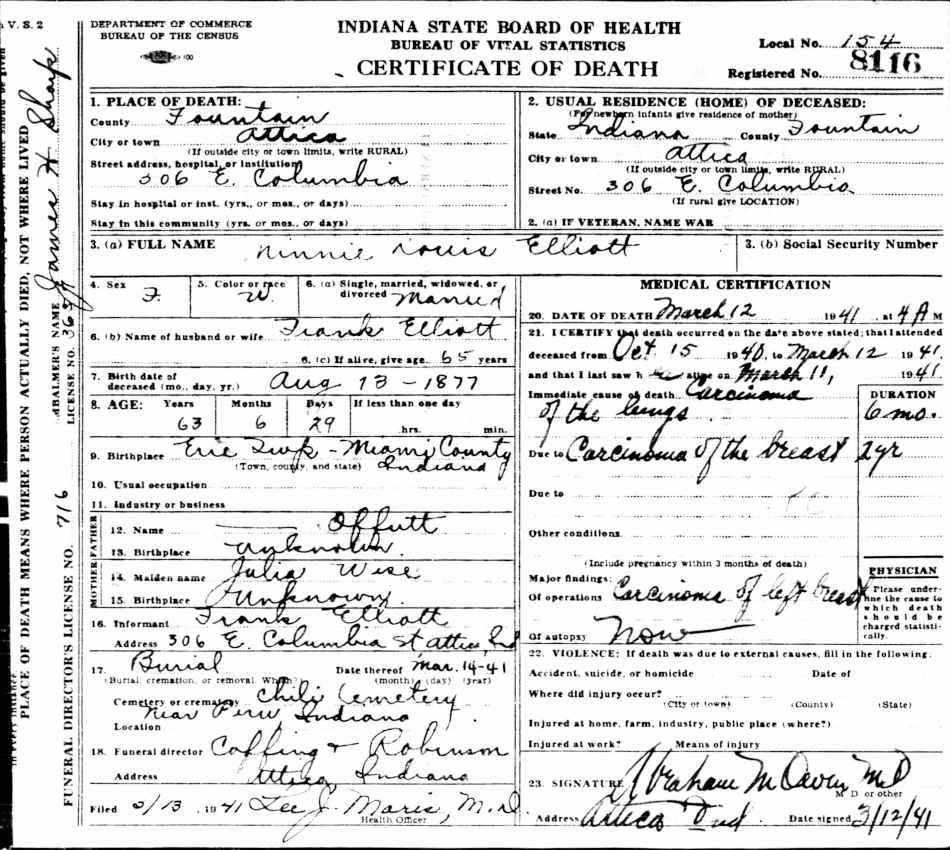 V. S. 2
DEPARTMENT OF COMMERCE
BUREAU OF THE CENSUS
INDIANA STATE BOARD OF HEALTH
BUREAU OF VITAL STATISTICS
CERTIFICATE OF DEATH
Local No. 154
Registered No. 8116
PLACE OF DEATH MEANS WHERE PERSON ACTUALLY DIED, NOT WHERE LIVED
FUNERAL DIRECTOR'S LICENSE NO. 716
EMBALMER'S NAME James H Sharp
LICENSE NO.
1. PLACE OF DEATH:
County Fountain
City or town Attica
(If outside city or town limits, write RURAL)
Street address, hospital, or institution
306 E. Columbia
Stay in hospital or inst. (yrs., or mos., or days)
Stay in this community (yrs. or mos., or days)
2. USUAL RESIDENCE (HOME) OF DECEASED:
(For newborn infants give residence of mother)
State Indiana County Fountain
City or town Attica
(If outside city or town limits, write RURAL)
Street No. 306 E. Columbia
(If rural give LOCATION)
2. (a) IF VETERAN, NAME WAR
3. (a) FULL NAME Minnie Louis Elliott
3. (b) Social Security Number
4. Sex F.
5. Color or race W.
6. (a) Single, married, widowed, or divorced Married
6. (b) Name of husband or wife Frank Elliott
6. (c) If alive, give age 65 years
7. Birth date of
deceased (mo., day, yr.) Aug 13 - 1877
8. AGE: Years Months Days If less than one day
63 6 29 hrs. min.
9. Birthplace Erie Twp - Miami County
(Town, county, and state) Indiana
10. Usual occupation
11. Industry or business
FATHER
12. Name Offutt
13. Birthplace Unknown
MOTHER
14. Maiden name Julia Wise
15. Birthplace Unknown
16. Informant Frank Elliott
Address 306 E. Columbia St Attica, Ind
17. Burial Date thereof Mar. 14-41
(Burial, cremation, or removal. Which?) (month) (day) (year)
Cemetery or crematory Chili Cemetery
near Peru, Indiana
Location
18. Funeral director Coffing & Robinson
Address Attica Indiana
Filed 3/13, 1941 Lee J. Maris, M.D.
Health Officer
MEDICAL CERTIFICATION
20. DATE OF DEATH March 12 1941, at 4 A M
21. I CERTIFY that death occurred on the date above stated; that I attended
deceased from Oct. 15 1940, to March 12 1941.
and that I last saw her alive on March 11, 1941.
Immediate cause of death Carcinoma DURATION
of the lungs 6 mo.
Due to Carcinoma of the breast 2 yr
Due to
Other conditions
(Include pregnancy within 3 months of death)
Major findings:
Of operations Carcinoma of left breast
Of autopsy None
PHYSICIAN
Please under-
line the cause to
which death
should be
charged statisti-
cally.
22. VIOLENCE: If death was due to external causes, fill in the following:
Accident, suicide, or homicide Date of
Where did injury occur?
(City or town) (County) (State)
Injured at home, farm, industry, public place (where?)
Injured at work? Means of injury
23. SIGNATURE Abraham M Owen M.D
M D or other
Address Attica Ind Date signed 3/12/41